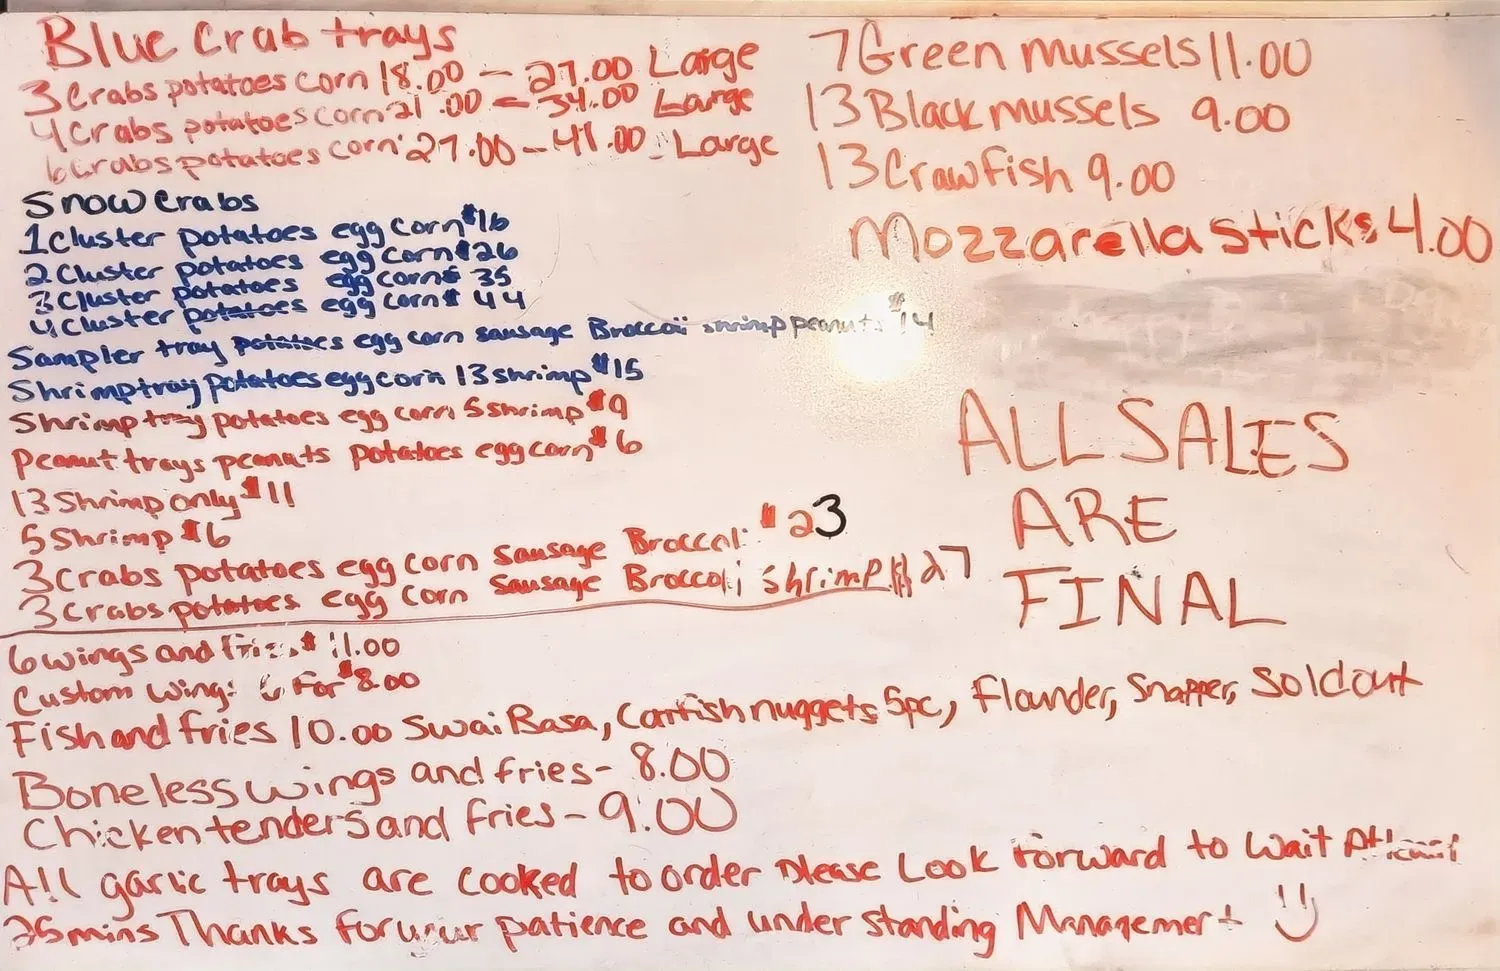 Blue Crab trays
3 Crabs potatoes corn 18.00 - 27.00 Large
4 Crabs potatoes corn 21.00 - 34.00 Large
6 crabs potatoes corn 27.00 - 41.00 Large
Snow Crabs
1 Cluster potatoes egg corn $16
2 Cluster potatoes egg corn $26
3 Cluster potatoes egg corn $ 35
4 Cluster potatoes egg corn $ 44
Sampler tray potatoes egg corn sausage Broccoli shrimp peanuts $14
Shrimp tray potatoes egg corn 13 shrimp $15
Shrimp tray potatoes egg corn 5 shrimp $9
Peanut trays peanuts potatoes egg corn $6
13 Shrimp only $11
5 Shrimp $6
3 Crabs potatoes egg corn Sausage Broccoli $23
3 crabs potatoes egg corn Sausage Broccoli Shrimp $27
6 wings and fries $11.00
Custom wings 6 For $8.00
Fish and fries 10.00 Swai Basa, Catfish nuggets 5pc, Flounder, Snapper, Sold out
Boneless wings and fries - 8.00
Chicken tenders and fries - 9.00
All garlic trays are cooked to order Please Look forward to Wait Atleast
25 mins Thanks for your patience and under standing Management
7 Green mussels 11.00
13 Black mussels 9.00
13 Crawfish 9.00
Mozzarella Sticks 4.00
ALL SALES
ARE
FINAL